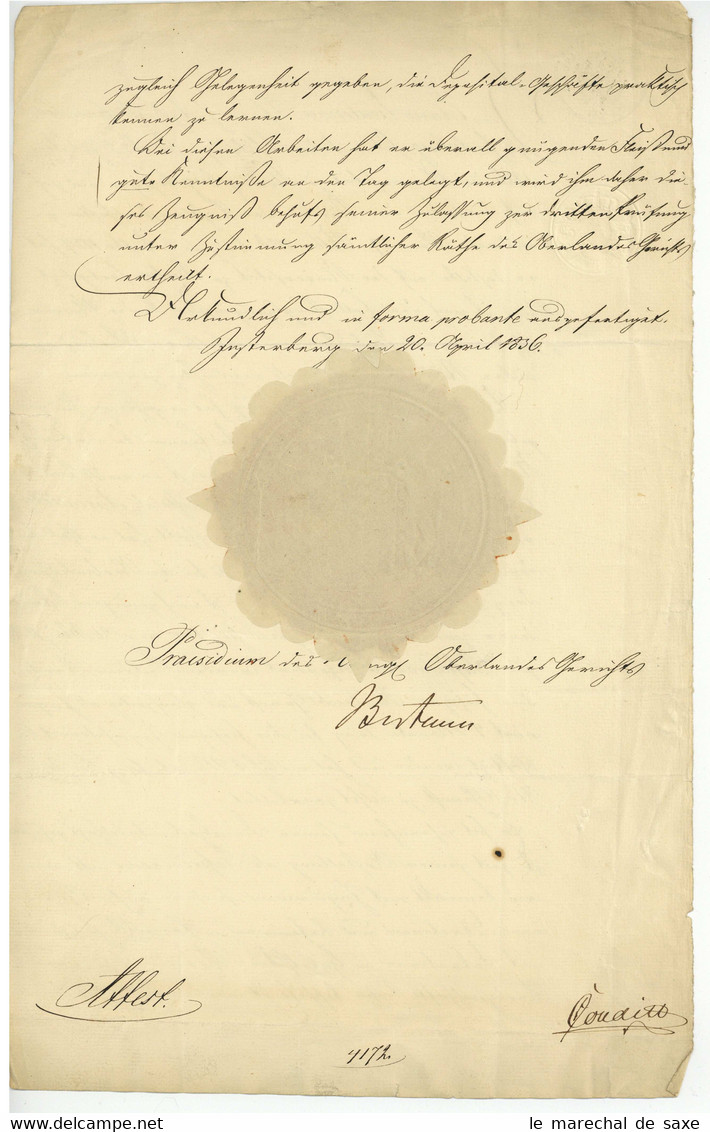 zugleich Gelegenheit gegeben, die Deposital-Geschäfte praktisch
kennen zu lernen.
Bei diesen Arbeiten hat er überall genügenden Fleiß und
gute Kenntniße an den Tag gelegt, und wird ihm daher die-
ses Zeugniß behufs seiner Zulassung zur dritten Prüfung
unter Zustimmung sämtlicher Räthe des Oberlandes Gerichts
ertheilt.
Urkundlich und in forma probante ausgefertiget.
Insterburg den 20. April 1836.
Praesidium des Oberlandes Gerichts
Attest.
4172
le marechal de saxe